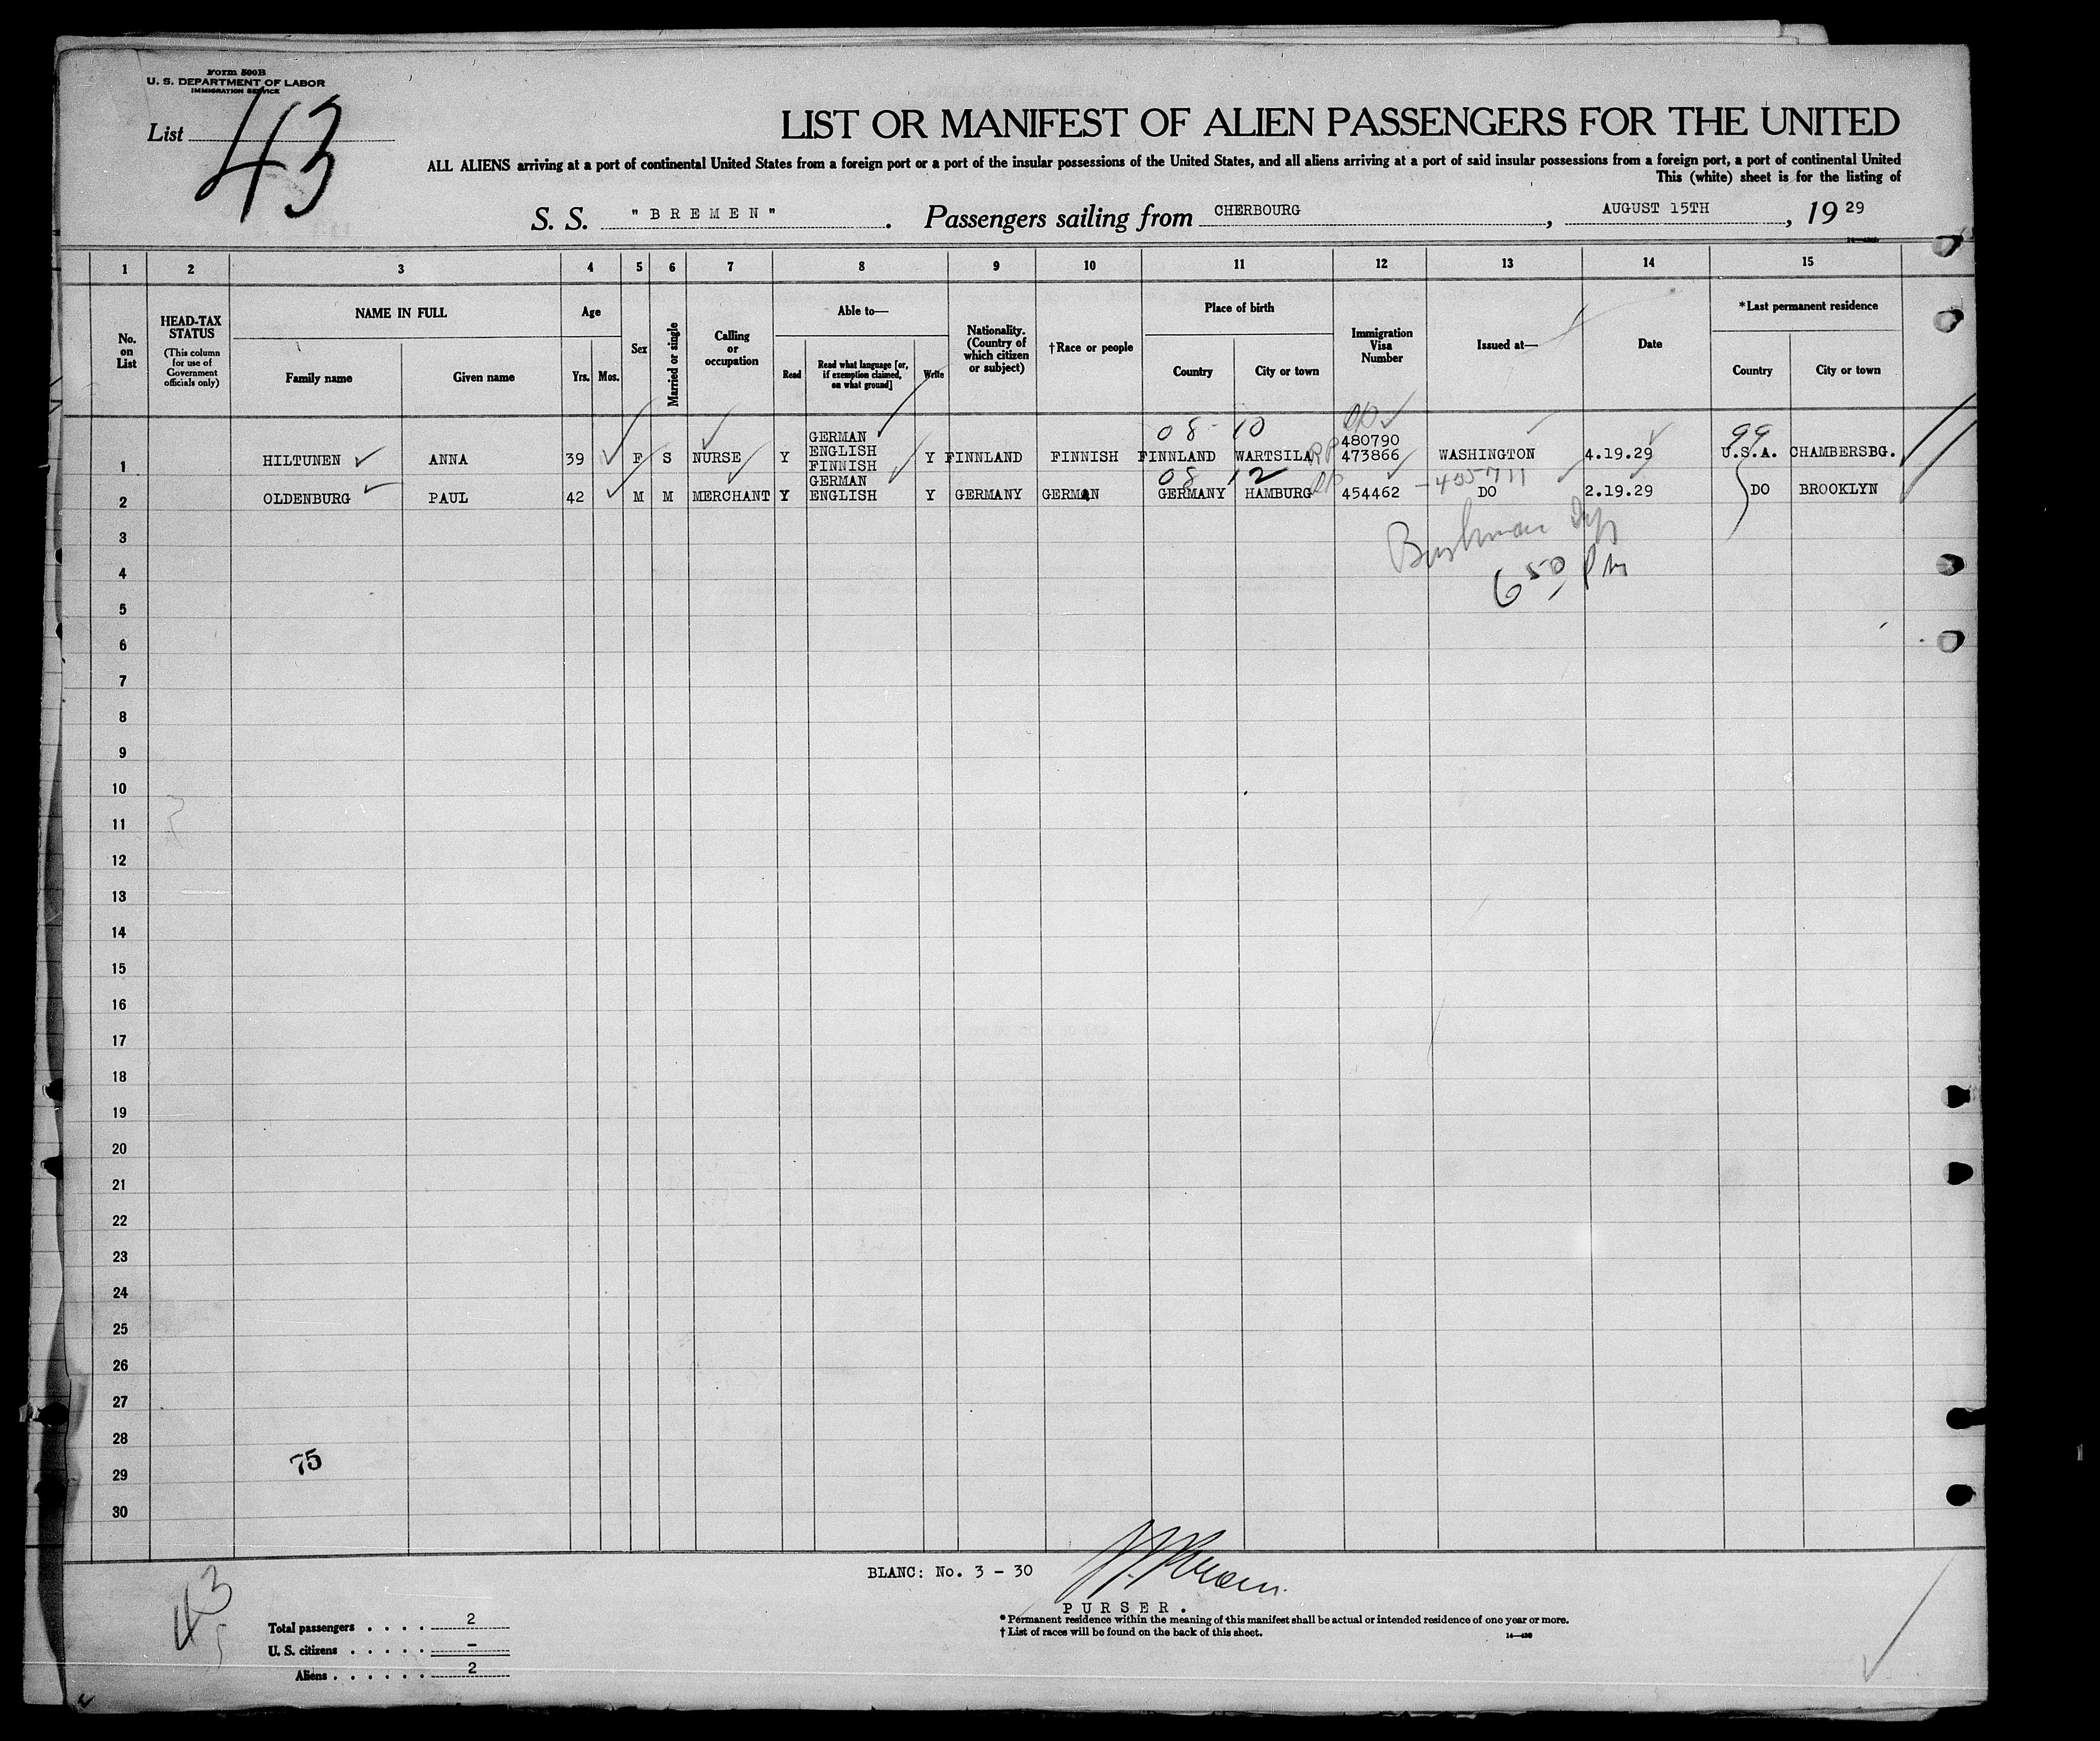 Form 500B
U. S. DEPARTMENT OF LABOR
IMMIGRATION SERVICE
List 43
LIST OR MANIFEST OF ALIEN PASSENGERS FOR THE UNITED
ALL ALIENS arriving at a port of continental United States from a foreign port or a port of the insular possessions of the United States, and all aliens arriving at a port of said insular possessions from a foreign port, a port of continental United
This (white) sheet is for the listing of
S. S. "BREMEN". Passengers sailing from CHERBOURG, AUGUST 15TH, 1929
1 2 3 4 5 6 7 8 9 10 11 12 13 14 15
No. on List
HEAD-TAX STATUS
(This column for use of Government officials only)
NAME IN FULL
Family name Given name
Age
Yrs. Mos.
Sex
Married or single
Calling or occupation
Able to—
Read
Read what language [or, if exemption claimed, on what ground]
Write
Nationality. (Country of which citizen or subject)
†Race or people
Place of birth
Country City or town
Immigration Visa Number
Issued at—
Date
*Last permanent residence
Country City or town
08 - 10
99
1 HILTUNEN ANNA 39 F S NURSE Y GERMAN ENGLISH FINNISH Y FINNLAND FINNISH FINNLAND WARTSILA 480790 473866 WASHINGTON 4.19.29 U.S.A. CHAMBERSBG.
08 12
2 OLDENBURG PAUL 42 M M MERCHANT Y GERMAN ENGLISH Y GERMANY GERMAN GERMANY HAMBURG 454462 DO 2.19.29 DO BROOKLYN
3
4
6 50 PM
5
6
7
8
9
10
11
12
13
14
15
16
17
18
19
20
21
22
23
24
25
26
27
28
75
29
30
BLANC: No. 3 - 30
PURSER.
43
Total passengers . . . . 2
U. S. citizens . . . . . –
Aliens . . . . . . 2
* Permanent residence within the meaning of this manifest shall be actual or intended residence of one year or more.
† List of races will be found on the back of this sheet.